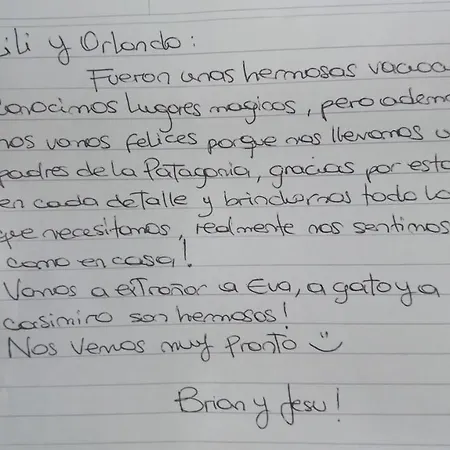 ili y Orlando:
Fueron unas hermosas vacac
Conocimos lugares magicos, pero adem
nos vamos felices porque nos llevamos u
padres de la Patagonia, gracias por esta
en cada detalle y brindarnos todo lo
que necesitamos, realmente nos sentimos
como en casa!
Vamos a extrañar a Eva, a gato y a
casimiro son hermosos!
Nos vemos muy pronto
Brian y Jesu!